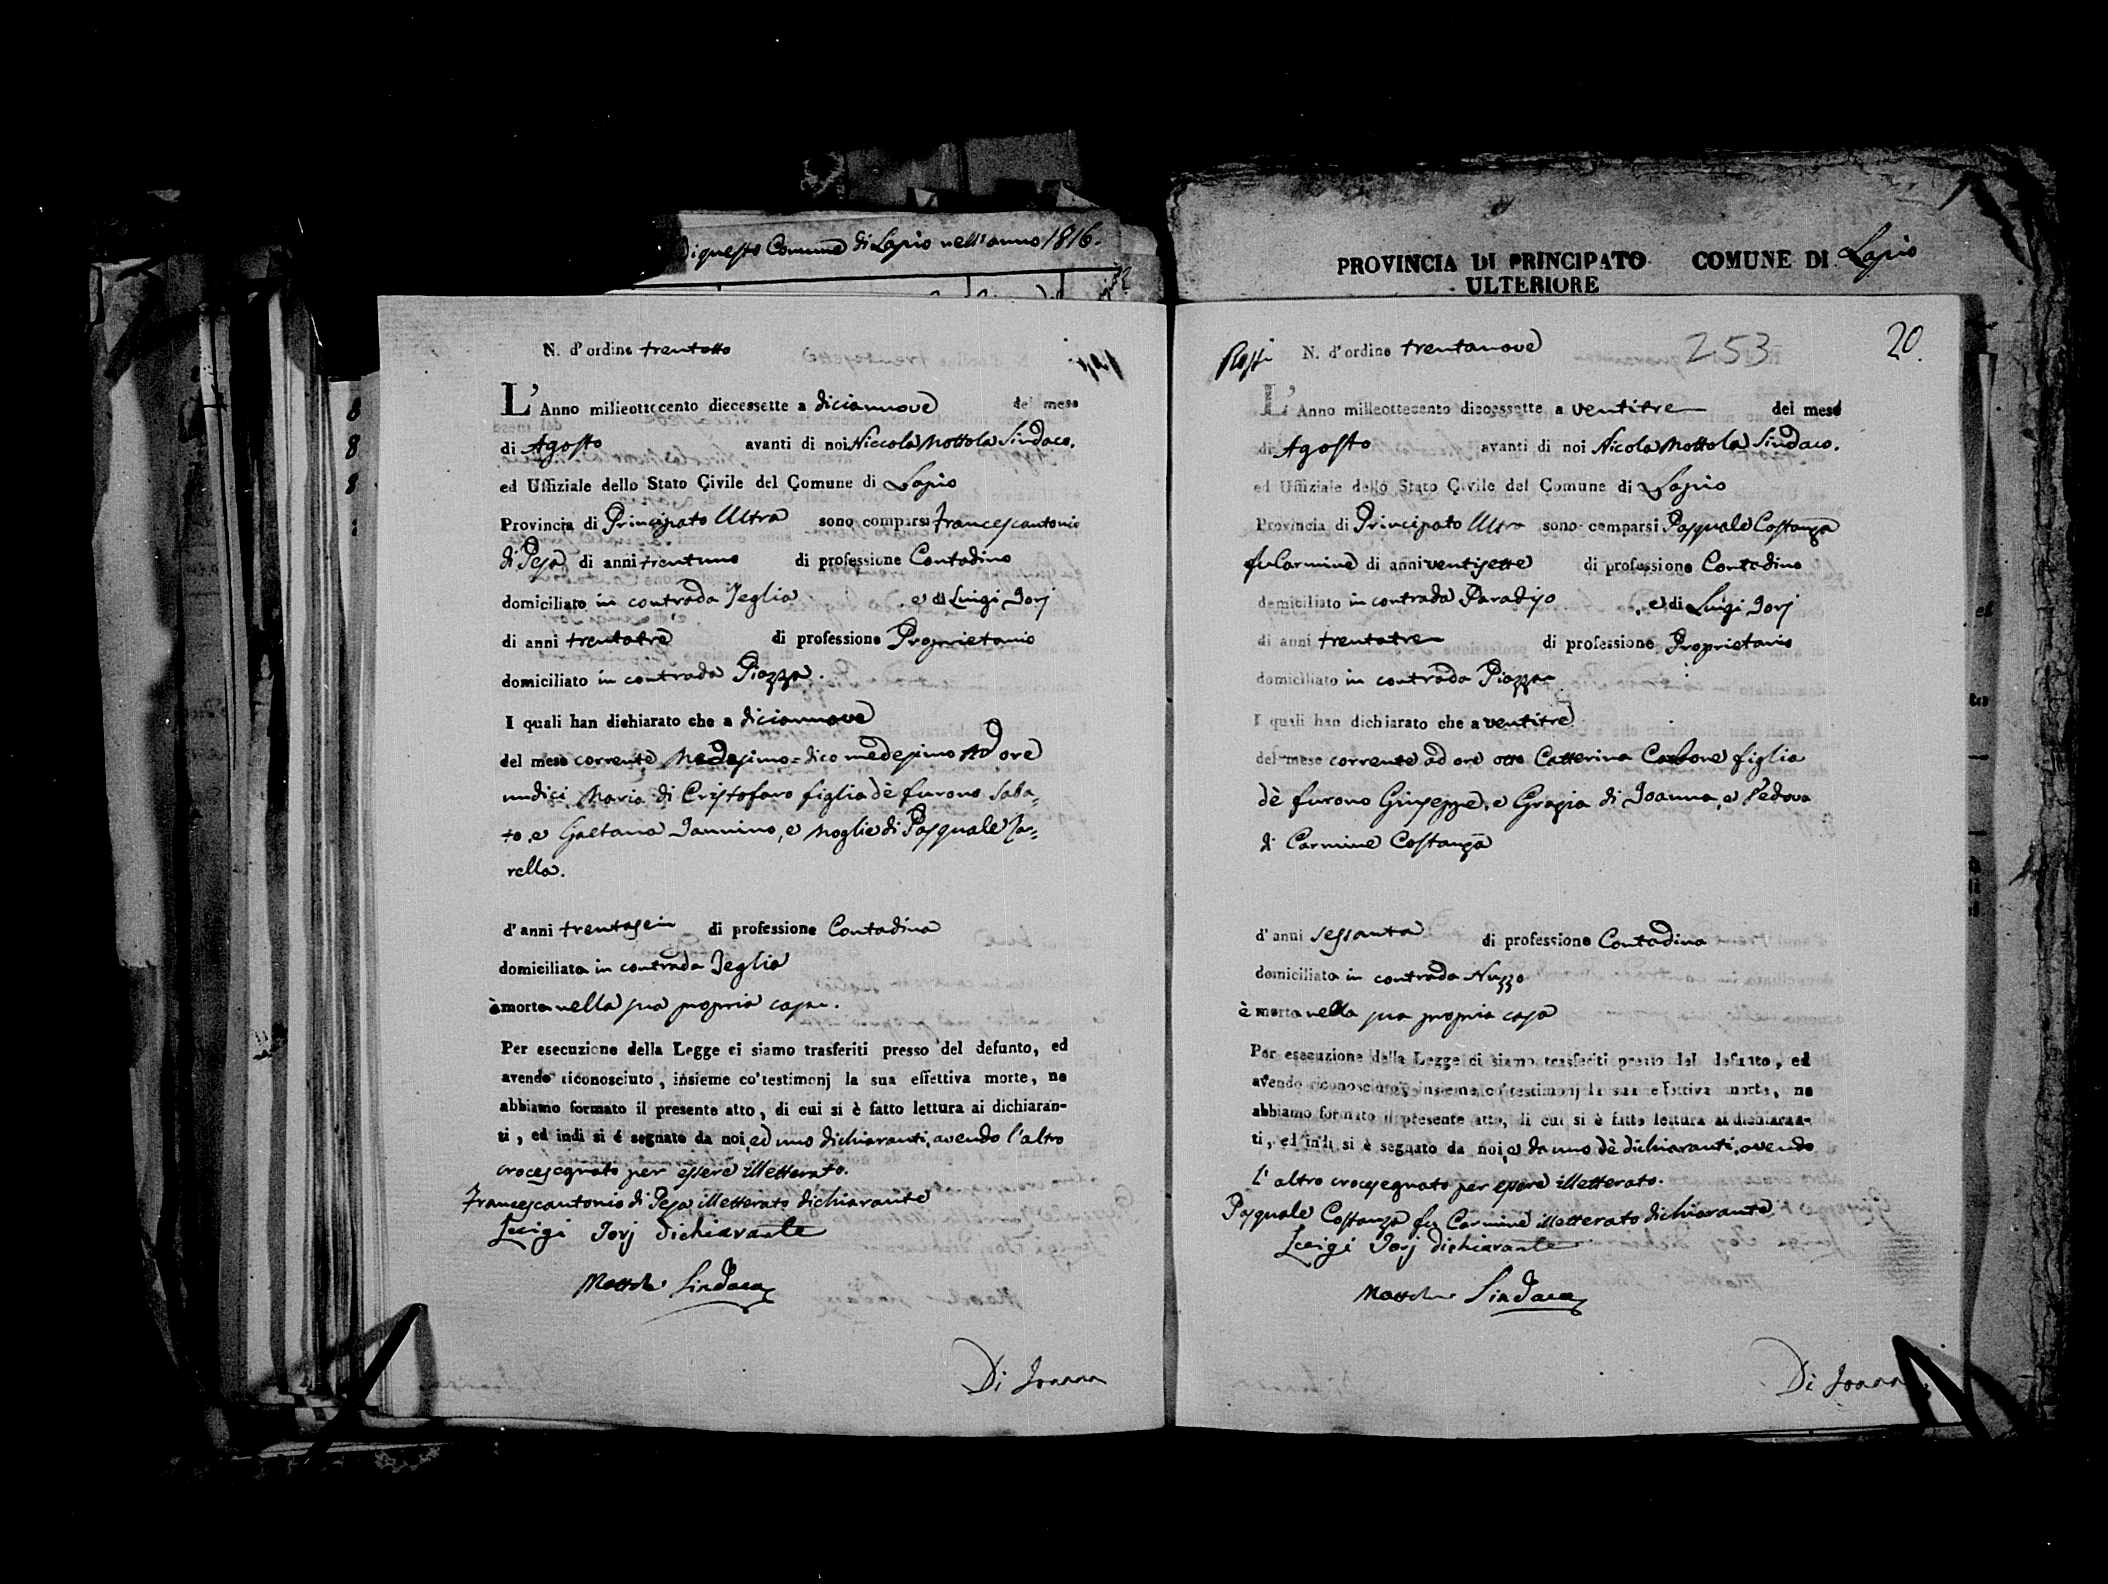 di questo Comune di Lapio nell'anno 1816.
PROVINCIA DI PRINCIPATO COMUNE DI Lapio
ULTERIORE
N. d'ordine trentotto
L'Anno milleottocento diecessette a diciannove del mese
di Agosto avanti di noi Niccola Mottola Sindaco.
ed Uffiziale dello Stato Civile del Comune di Lapio
Provincia di Principato Ultra sono comparsi Francescantonio
di Pesa di anni trentuno di professione Contadino
domiciliato in contrada Teglia e di Luigi Iorj
di anni trentatrè di professione Proprietario
domiciliato in contrada Piazza.
I quali han dichiarato che a diciannove
del mese corrente Medesimo = dico medesimo Ad ore
undici Maria di Cristofaro figlia dè furono Saba=
to, e Gaetana Iannino, e Moglie di Pasquale
rella.
d'anni trentasei di professione Contadina
domiciliata in contrada Teglia
è morta nella sua propria casa.
Per esecuzione della Legge ci siamo trasferiti presso del defunto, ed
avendo riconosciuto, insieme co'testimonj la sua effettiva morte, ne
abbiamo formato il presente atto, di cui si è fatto lettura ai dichiaran-
ti, ed indi si è segnato da noi, ed uno dichiaranti, avendo l'altro
crocesegnato per essere illetterato.
Francescantonio di Pesa illetterato dichiarante
Luigi Iorj dichiarante
Mottola Sindaco
Di Ioanna
Rossi N. d'ordine trentanove 253 20.
L'Anno milleottocento diecessette a ventitre del mese
di Agosto avanti di noi Nicola Mottola Sindaco.
ed Uffiziale dello Stato Civile del Comune di Lapio
Provincia di Principato Ultra sono comparsi Pasquale Costanza
fu Carmine di anni ventisette di professione Contadino
domiciliato in contrada Paradiso, e di Luigi Iorj
di anni trentatre di professione Proprietario
domiciliato in contrada Piazza
I quali han dichiarato che a ventitrè
del mese corrente ad ore otto Catterina Carbone figlia
dè furono Giuseppe, e Grazia di Ioanna, e Vedova
di Carmine Costanza
d'anni sessanta di professione Contadina
domiciliata in contrada Nuzzo
è morta nella sua propria casa
Per esecuzione della Legge ci siamo trasferiti presso del defunto, ed
avendo riconosciuto, insieme co'testimonj la sua effettiva morte, ne
abbiamo formato il presente atto, di cui si è fatto lettura ai dichiaran-
ti, ed indi si è segnato da noi, e da uno dè dichiaranti, avendo
l'altro crocesegnato per essere illetterato.
Pasquale Costanza fu Carmine illetterato dichiarante
Luigi Iorj dichiarante
Mottola Sindaco
Di Ioanna